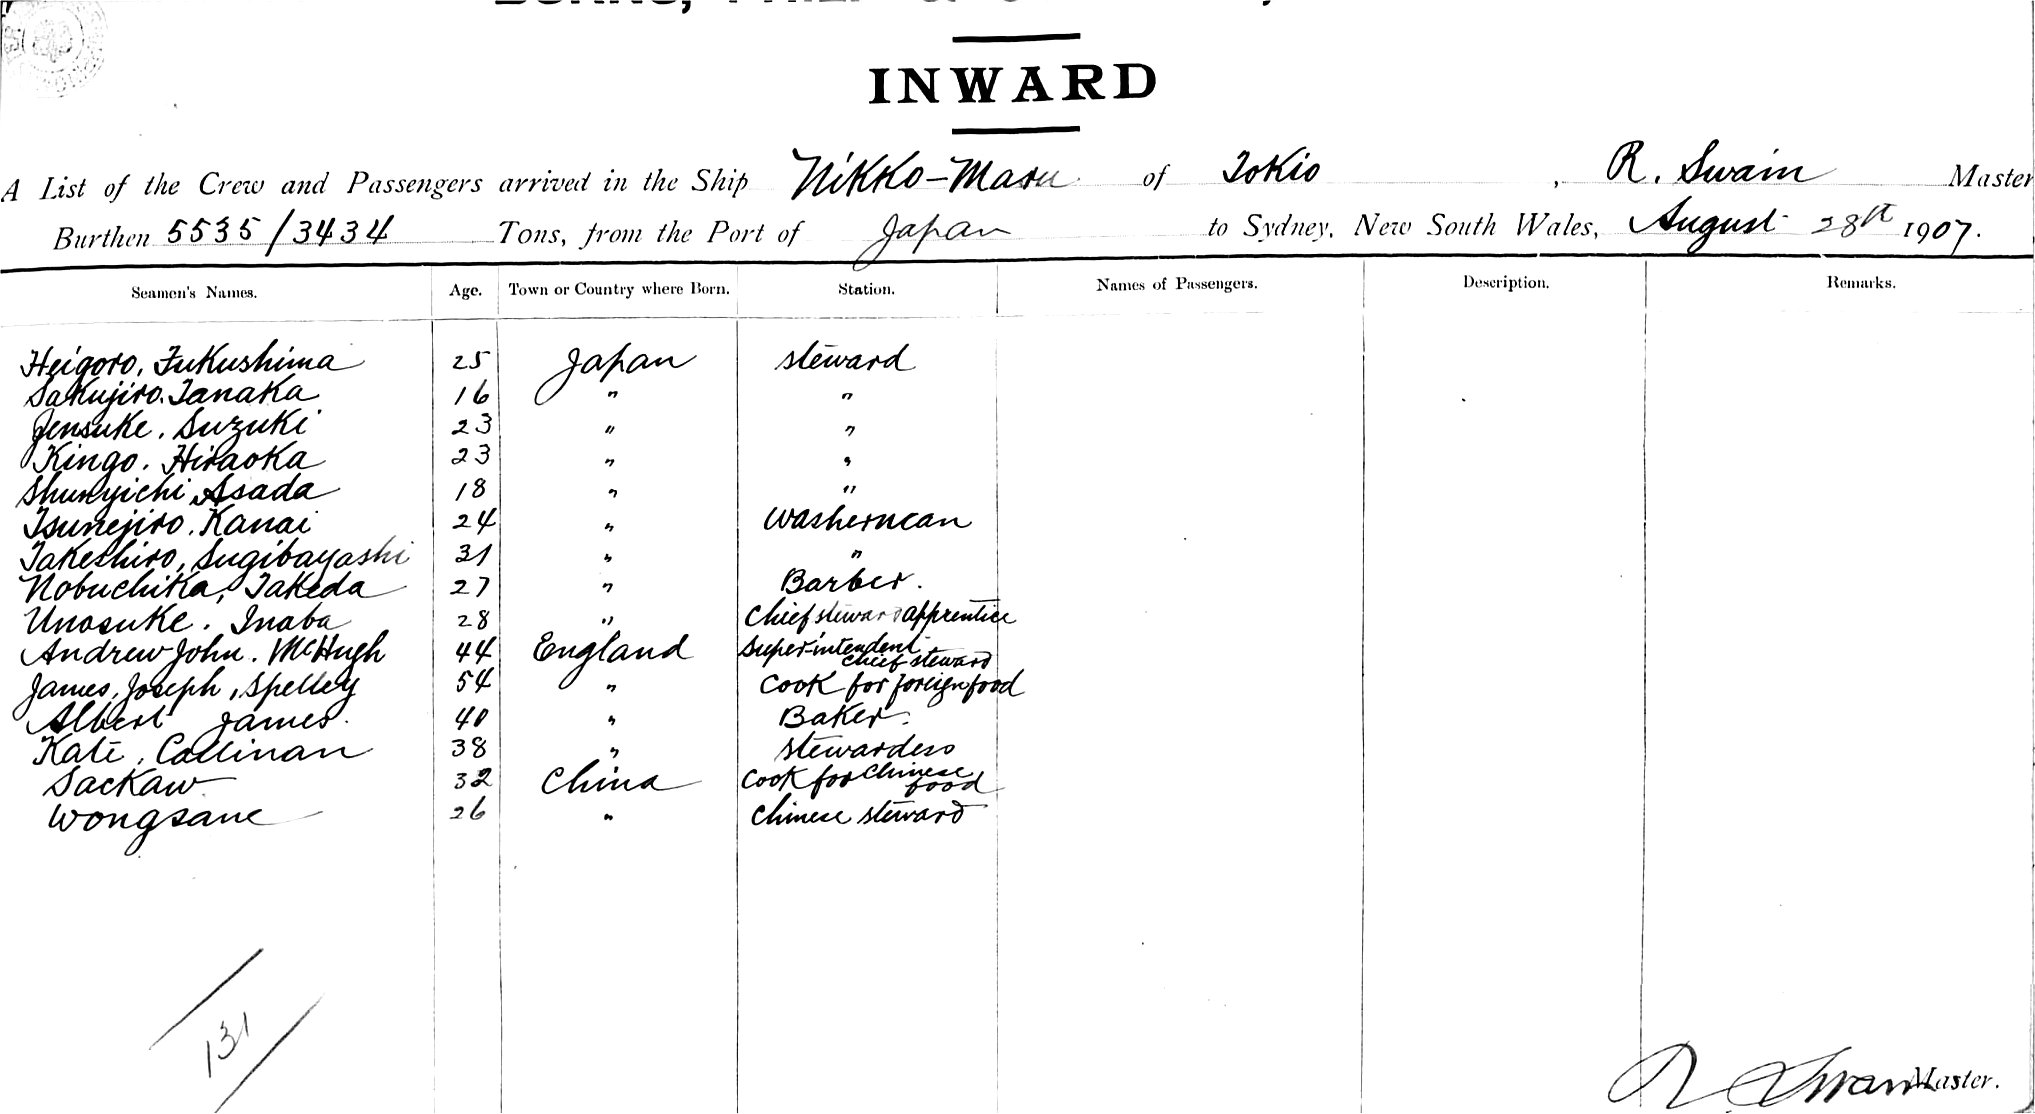 INWARD
A List of the Crew and Passengers arrived in the Ship Nikko-Maru of Tokio, R. Swain Master
Burthen 5535/3434 Tons, from the Port of Japan to Sydney, New South Wales, August 28th 1907.
Seamen's Names. Age. Town or Country where Born. Station. Names of Passengers. Description. Remarks.
Heigoro, Fukushima 25 Japan steward
Sakujiro. Tanaka 16 " "
Jensuke. Suzuki 23 " "
Kingo. Hiraoka 23 " "
Shunyichi Asada 18 " "
Tsunejiro. Kanai 24 " washerman
Takeshiro, Sugibayashi 31 " "
Nobuchika, Takeda 27 " Barber.
Unosuke. Inaba 28 " Chief steward apprentice
Andrew John. McHugh 44 England Superintendent chief steward
James, Joseph, Spelley 54 " Cook for foreign food
Albert James. 40 " Baker.
Kate, Callinan 38 " stewardess
Sackaw 32 China Cook for Chinese food
Wongsane 26 " Chinese steward
131
R Swain Master.